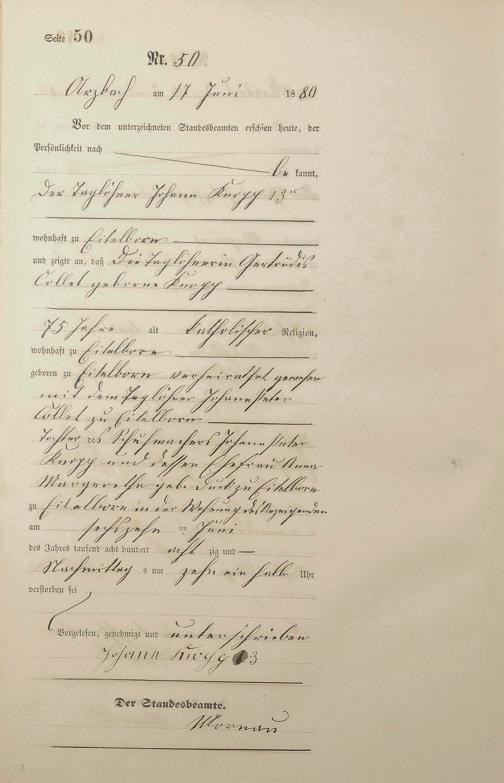 Seite 50
Nr. 50
Arzbach am 17 Juni 1880
Vor dem unterzeichneten Standesbeamten erschien heute, der
Persönlichkeit nach
be kannt,
der Taglöhner Johann Knopp 13r
wohnhaft zu Eitelborn
und zeigte an, daß Die Taglöhnerin Gertrudis
Collet geborne Knopp
75 Jahre alt katholischer Religion,
wohnhaft zu Eitelborn
geboren zu Eitelborn verheirathet gewesen
mit dem Taglöhner Johann Peter
Collet zu Eitelborn
Tochter des Schuhmachers Johann Peter
Knopp und dessen Ehefrau Anna
Margaretha geb: Duck zu Eitelborn
zu Eitelborn in der Wohnung des Anzeigenden
am sechszehn ten Juni
des Jahres tausend acht hundert acht zig und
Nachmittag s um zehn ein halb Uhr
verstorben sei
Vorgelesen, genehmigt und unterschrieben
Johann Knopp 13
Der Standesbeamte.
Mornau